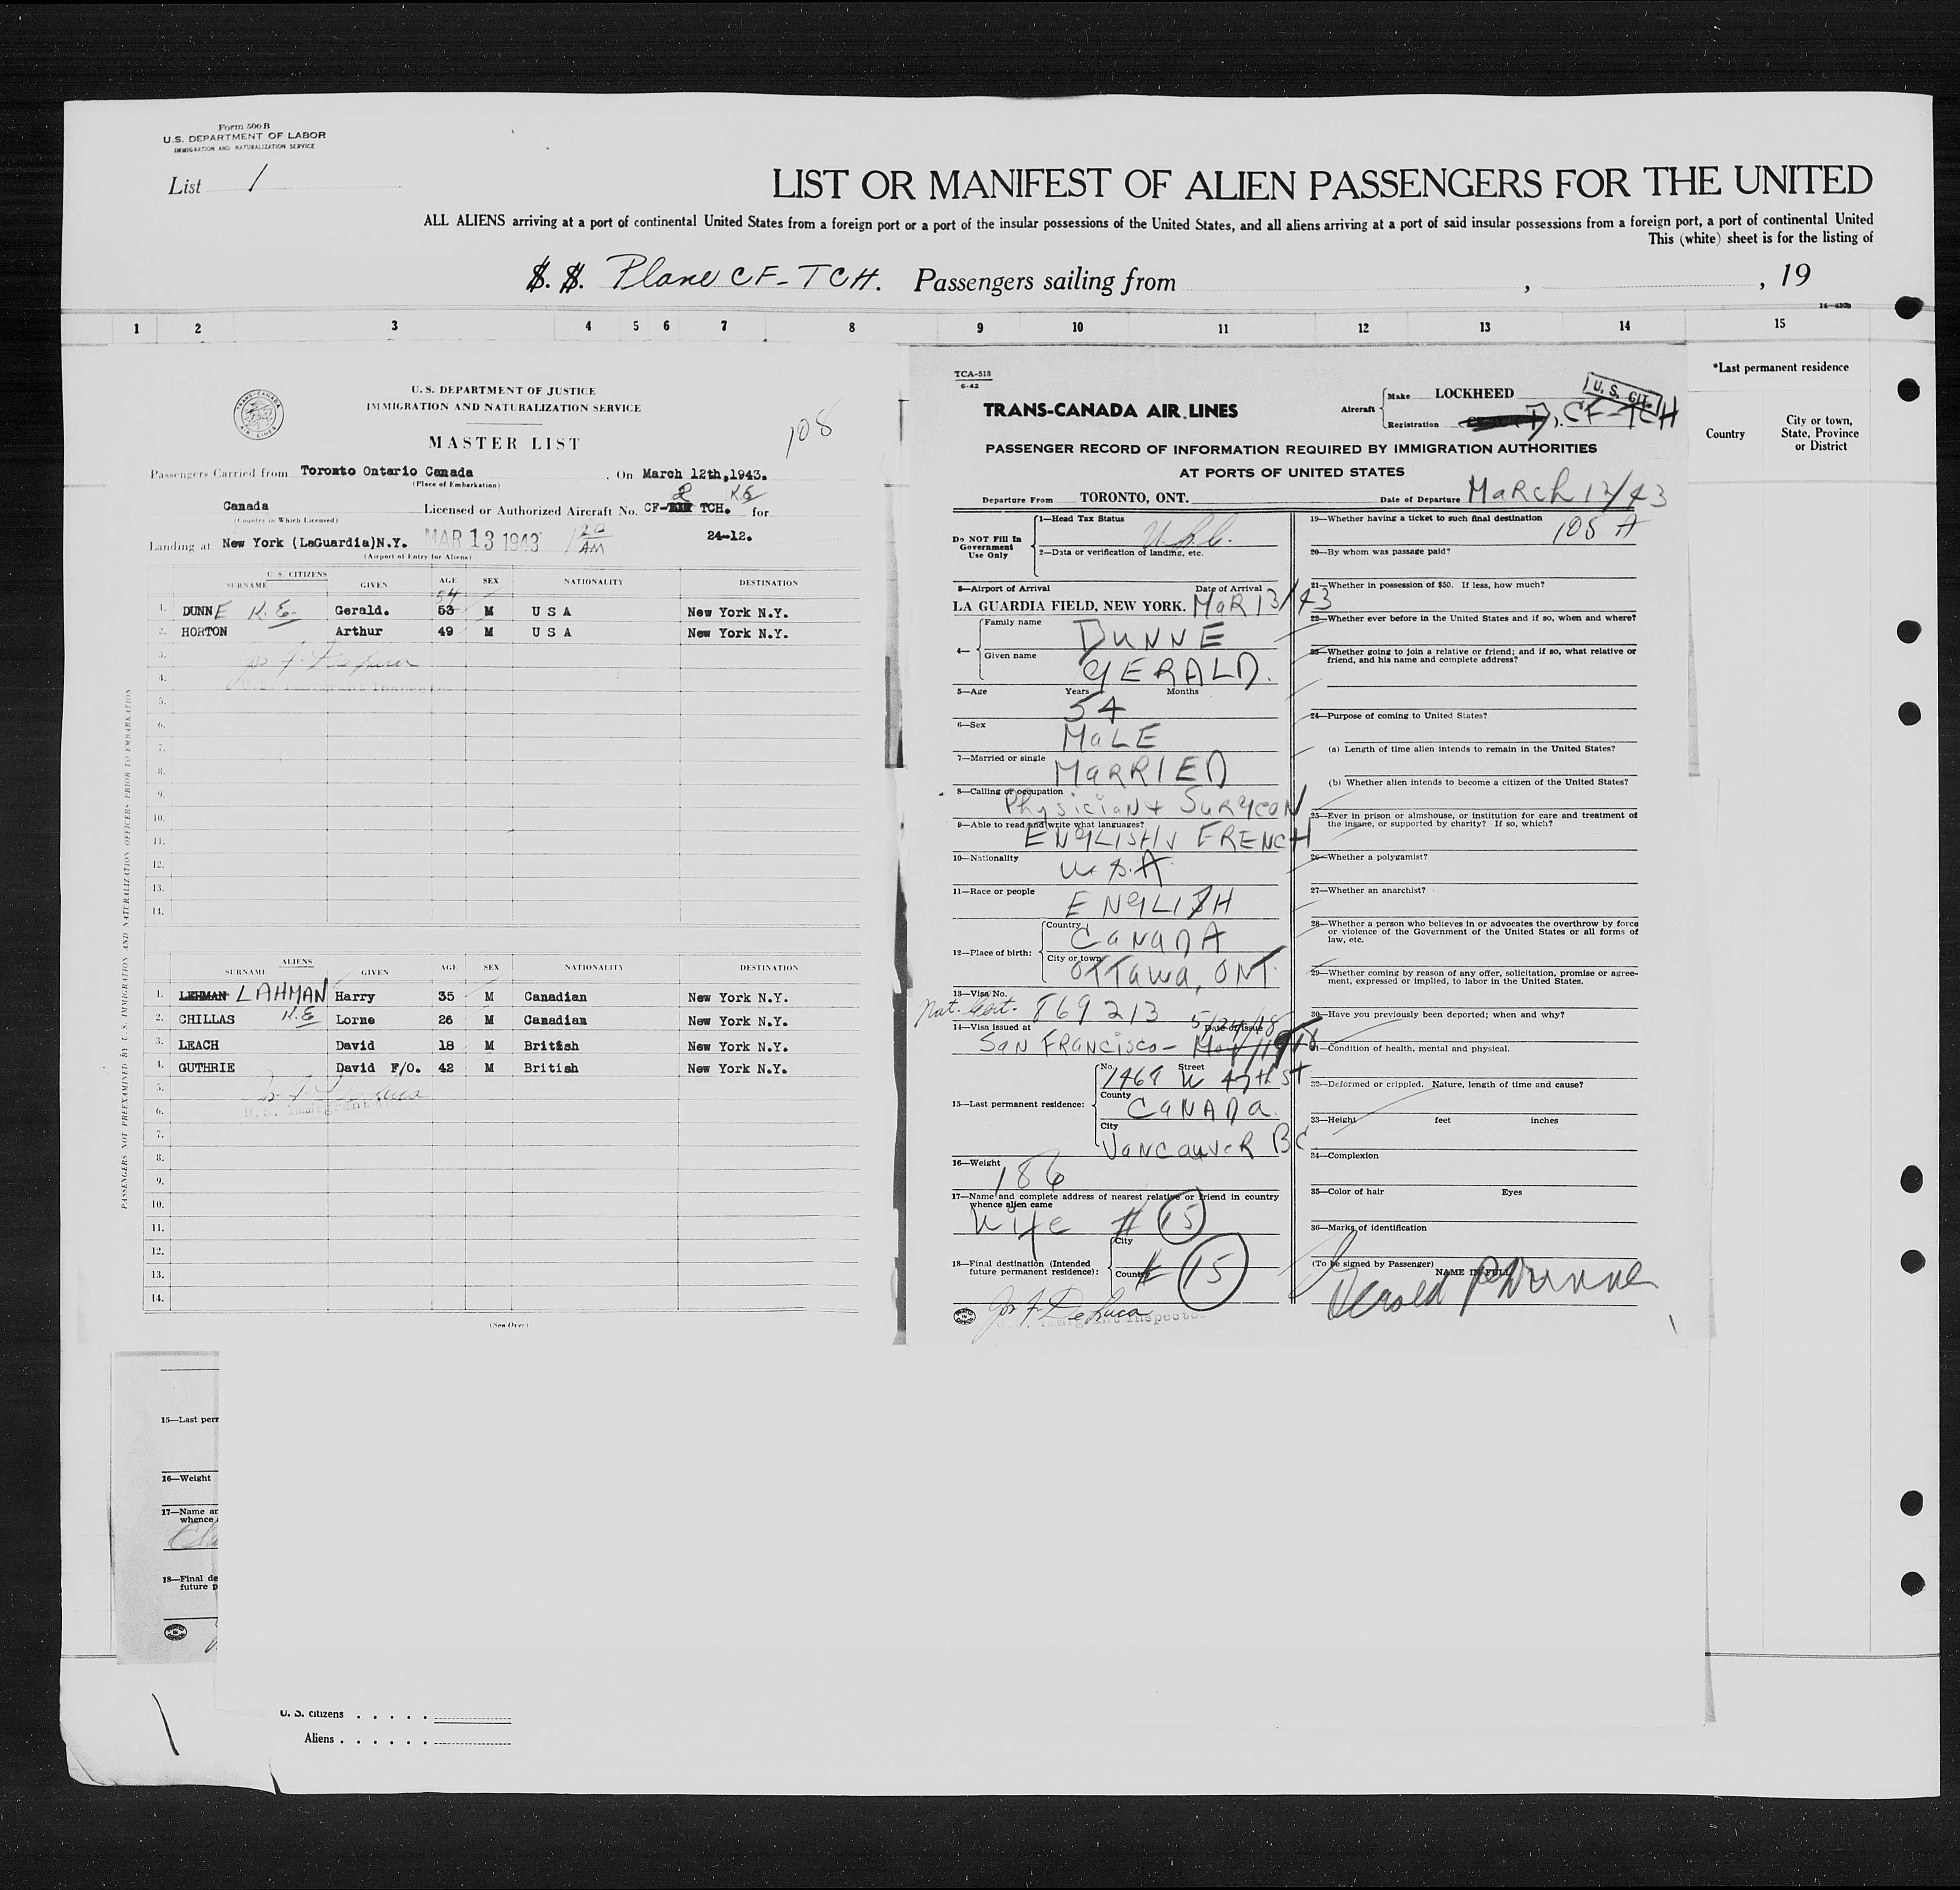 Form 500 B
U.S. DEPARTMENT OF LABOR
IMMIGRATION AND NATURALIZATION SERVICE
List 1
LIST OR MANIFEST OF ALIEN PASSENGERS FOR THE UNITED
ALL ALIENS arriving at a port of continental United States from a foreign port or a port of the insular possessions of the United States, and all aliens arriving at a port of said insular possessions from a foreign port, a port of continental United
This (white) sheet is for the listing of
S. S. Plane CF-TCH. Passengers sailing from , , 19
1 2 3 4 5 6 7 8 9 10 11 12 13 14 15
*Last permanent residence
Country
City or town, State, Province or District
TRANS-CANADA AIR LINES
U. S. DEPARTMENT OF JUSTICE
IMMIGRATION AND NATURALIZATION SERVICE
MASTER LIST
108
Passengers Carried from Toronto Ontario Canada . On March 12th,1943.
(Place of Embarkation)
K.E
Canada Licensed or Authorized Aircraft No. CF- TCH. for
(Country in Which Licensed)
Landing at New York (LaGuardia)N.Y. MAR 13 1943 AM 24-12.
(Airport of Entry for Aliens)
U.S. CITIZENS
SURNAME GIVEN AGE SEX NATIONALITY DESTINATION
54
1. DUNNE K.E. Gerald. 53 M U S A New York N.Y.
2. HORTON Arthur 49 M U S A New York N.Y.
3.
4. U.S. Immigrant Inspector
5.
6.
7.
8.
9.
10.
11.
12.
13.
14.
ALIENS
SURNAME GIVEN AGE SEX NATIONALITY DESTINATION
1. LEHMAN LAHMAN Harry 35 M Canadian New York N.Y.
2. CHILLAS K.E Lorne 26 M Canadian New York N.Y.
3. LEACH David 18 M British New York N.Y.
4. GUTHRIE David F/O. 42 M British New York N.Y.
5.
6. U.S. Immigrant
7.
8.
9.
10.
11.
12.
13.
14.
(See Over)
PASSENGERS NOT PREEXAMINED BY U.S. IMMIGRATION AND NATURALIZATION OFFICERS PRIOR TO EMBARKATION
TCA-513
6-42
TRANS-CANADA AIR LINES
Aircraft
Make LOCKHEED
U. S. CIT.
Registration CF-TCH
PASSENGER RECORD OF INFORMATION REQUIRED BY IMMIGRATION AUTHORITIES
AT PORTS OF UNITED STATES
Departure From TORONTO, ONT. Date of Departure MARCH 12/43
Do NOT Fill In Government Use Only
1—Head Tax Status
U.S.C.
2—Data or verification of landing, etc.
3—Airport of Arrival Date of Arrival
LA GUARDIA FIELD, NEW YORK. MAR 13/43
4— Family name DUNNE
Given name GERALD.
5—Age Years Months
54
6—Sex
MALE
7—Married or single
MARRIED
8—Calling or occupation
Physician & SURGEON
9—Able to read and write what languages?
ENGLISH & FRENCH
10—Nationality
U.S.A
11—Race or people
ENGLISH
12—Place of birth: Country CANADA
City or town OTTAWA, ONT.
13—Visa No.
Nat. Cert. 869213
14—Visa issued at Date of issue
SAN FRANCISCO— May 1918
15—Last permanent residence:
No. Street
County
CANADA.
City
VANCOUVER BC
16—Weight
186
17—Name and complete address of nearest relative or friend in country whence alien came
Wife # 15
18—Final destination (Intended future permanent residence):
City
Country # 15
Jos F. DeLuca
U.S. Immigrant Inspector
19—Whether having a ticket to such final destination
108 A
20—By whom was passage paid?
21—Whether in possession of $50. If less, how much?
22—Whether ever before in the United States and if so, when and where?
23—Whether going to join a relative or friend; and if so, what relative or friend, and his name and complete address?
24—Purpose of coming to United States?
(a) Length of time alien intends to remain in the United States?
(b) Whether alien intends to become a citizen of the United States?
25—Ever in prison or almshouse, or institution for care and treatment of the insane, or supported by charity? If so, which?
26—Whether a polygamist?
27—Whether an anarchist?
28—Whether a person who believes in or advocates the overthrow by force or violence of the Government of the United States or all forms of law, etc.
29—Whether coming by reason of any offer, solicitation, promise or agreement, expressed or implied, to labor in the United States.
30—Have you previously been deported; when and why?
31—Condition of health, mental and physical.
32—Deformed or crippled. Nature, length of time and cause?
33—Height feet inches
34—Complexion
35—Color of hair Eyes
36—Marks of identification
(To be signed by Passenger)
NAME IN FULL
Gerald P Dunne
15—Last perm
16—Weight
17—Name an
whence a
18—Final de
future p
U. S. citizens . . . . .
Aliens . . . . . .